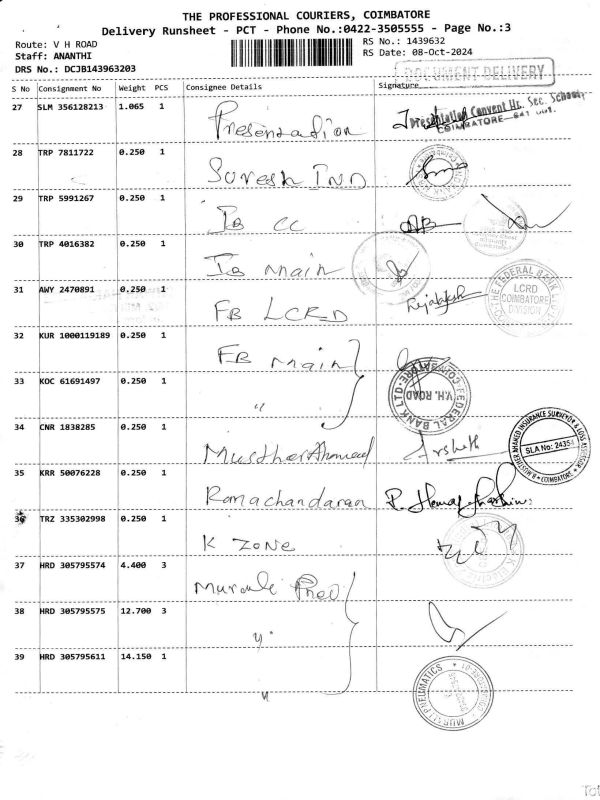 THE PROFESSIONAL COURIERS, COIMBATORE
Delivery Runsheet - PCT - Phone No.:0422-3505555 - Page No.:3
Route: V H ROAD
RS No.: 1439632
Staff: ANANTHI
RS Date: 08-Oct-2024
DRS No.: DCJB143963203
DOCUMENT DELIVERY
S No Consignment No Weight PCS Consignee Details Signature
27 SLM 356128213 1.065 1 Presentation
Presentation Convent Hr. Sec. School
COIMBATORE - 641 001.
28 TRP 7811722 0.250 1 Suresh IND
29 TRP 5991267 0.250 1 IB CC
30 TRP 4016382 0.250 1 IB main
31 AWY 2470891 0.250 1 FB LCRD Rejakesh
THE FEDERAL BANK
LCRD
COIMBATORE
DIVISION
32 KUR 1000119189 0.250 1 FB main
33 KOC 61691497 0.250 1 "
FEDERAL BANK LTD
V.H. ROAD
COIMBATORE
34 CNR 1838285 0.250 1 Musther Ahmed Arsheth
MUSTHER AHAMED INSURANCE SURVEYOR & LOSS ASSESSOR
SLA No: 24354
COIMBATORE
35 KRR 50076228 0.250 1 Ramachandaran
36 TRZ 335302998 0.250 1 K ZONE
37 HRD 305795574 4.400 3 Murali Pneu
38 HRD 305795575 12.700 3 "
39 HRD 305795611 14.150 1 "
MURALI PNEUMATICS
Tot